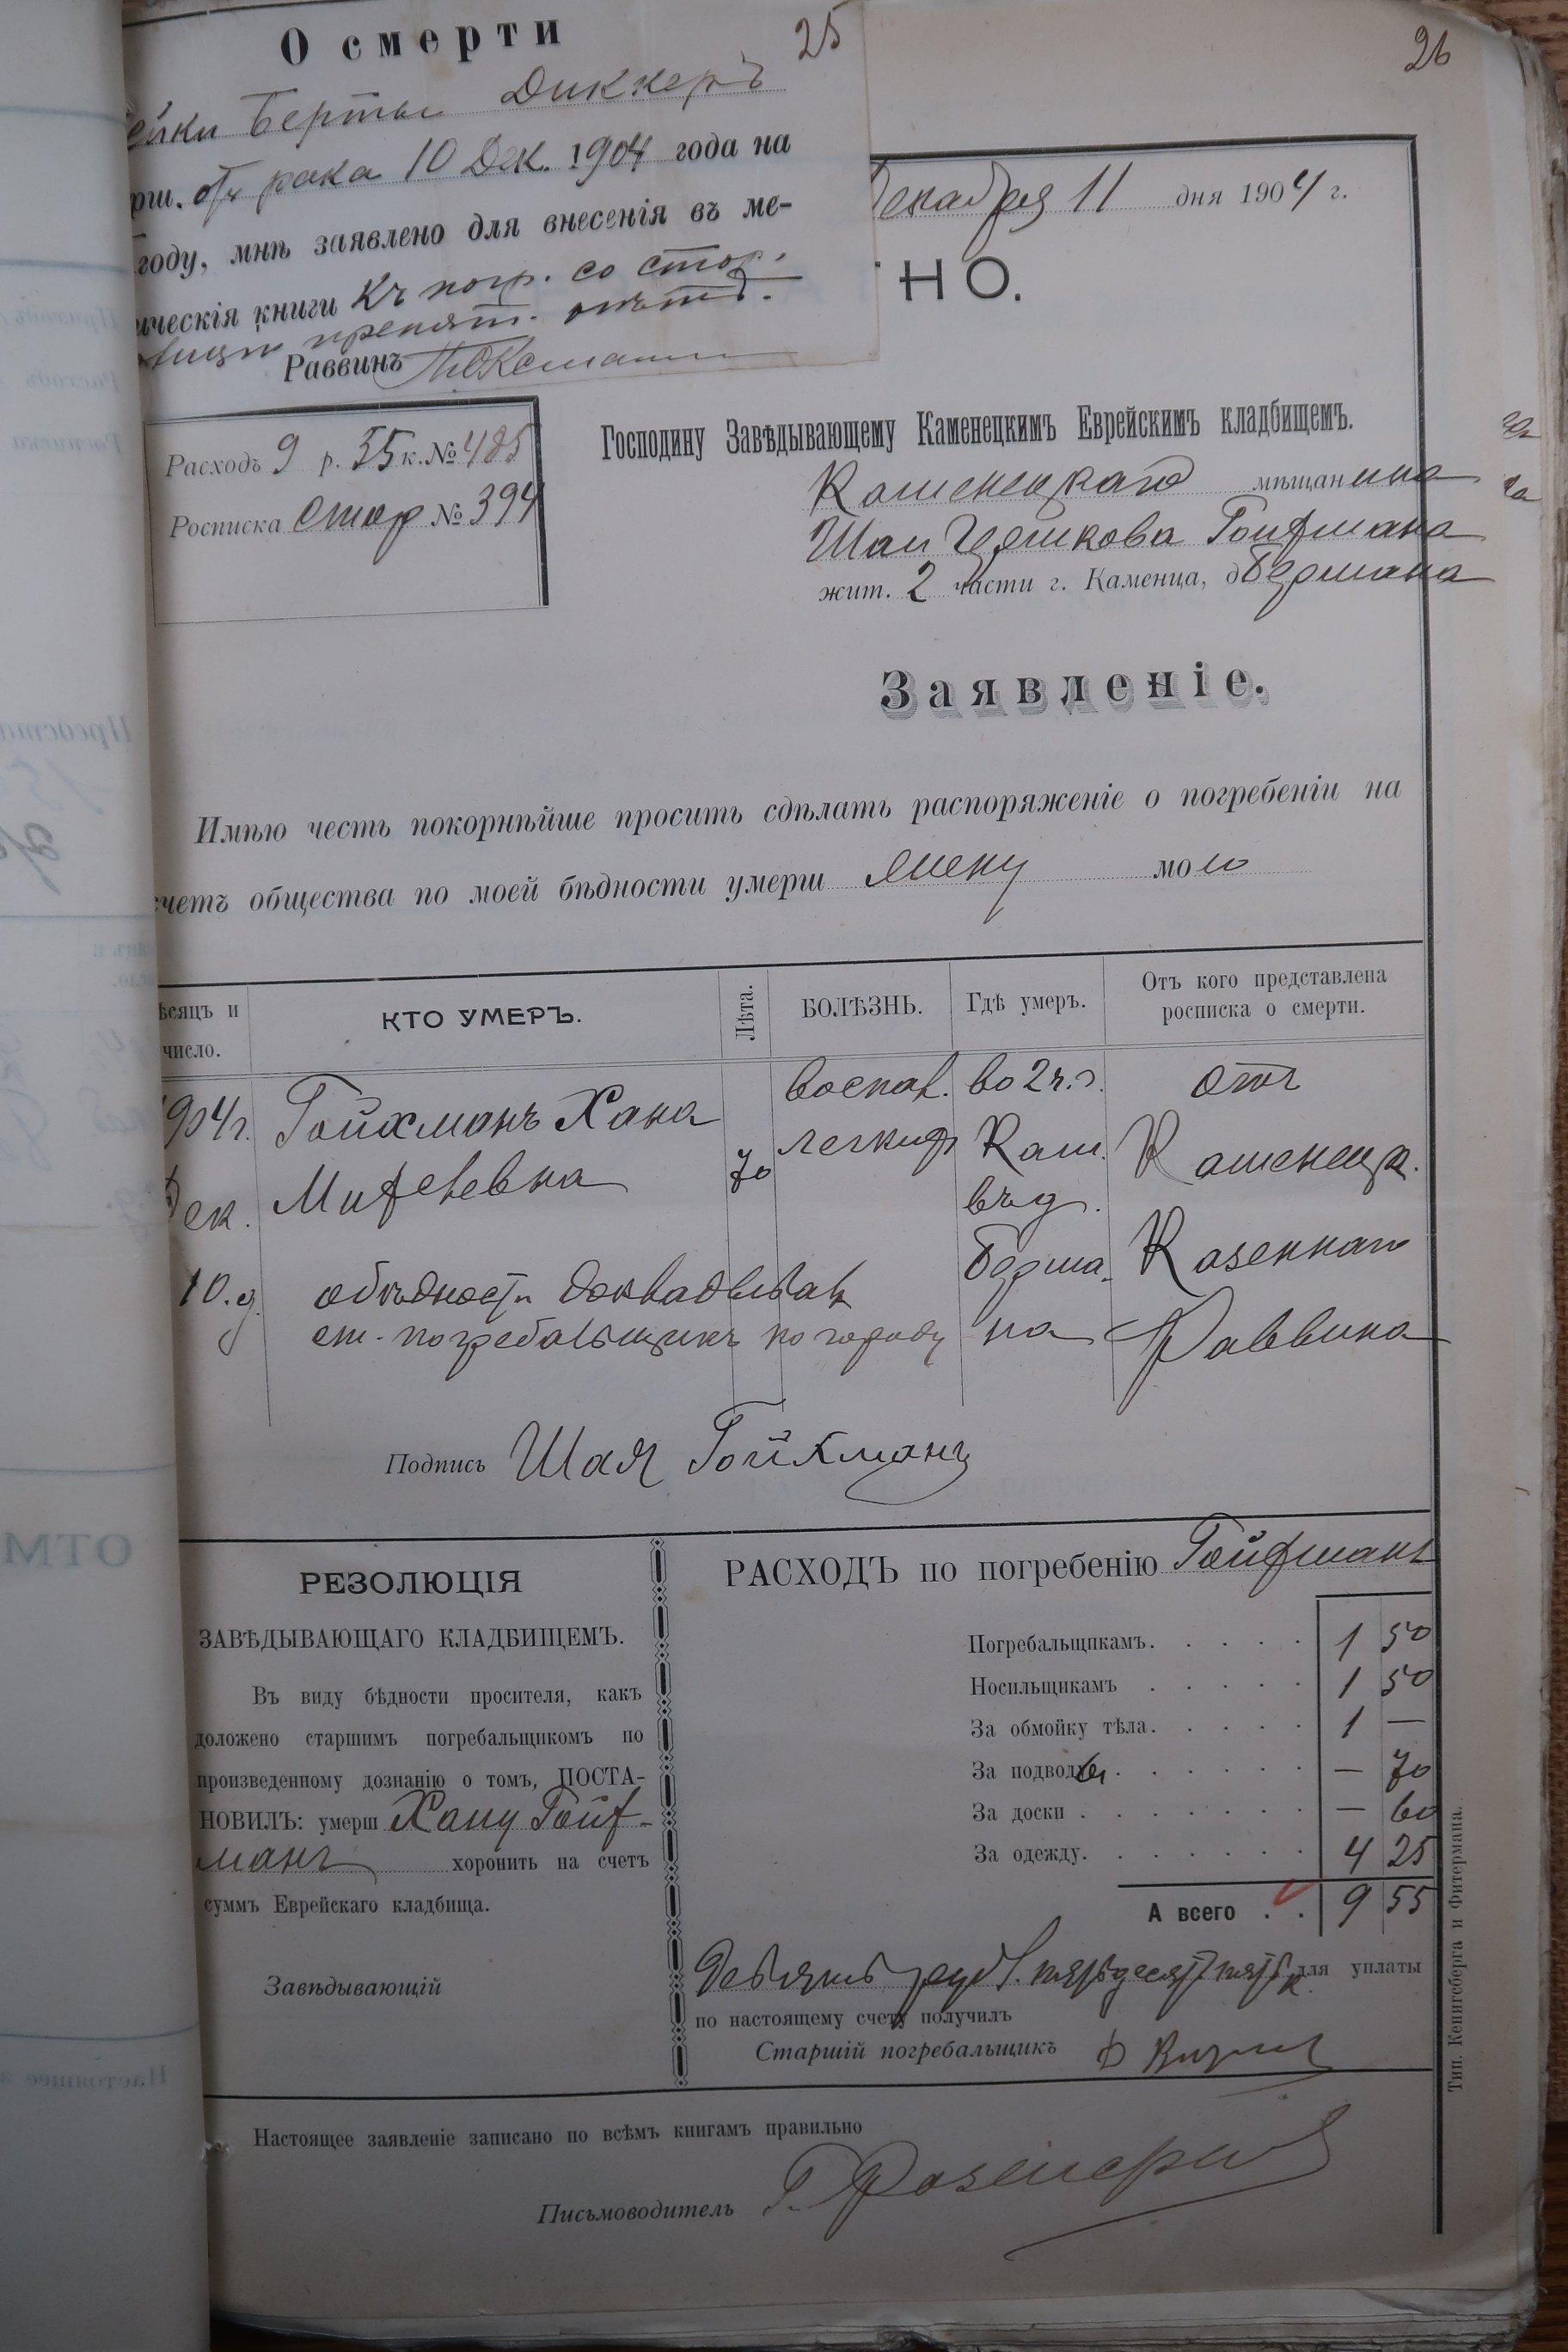 О смерти
25
26
ейки Берты Диккеръ
рш. отъ рака 10 Дек. 1904 года на
году, мнѣ заявлено для внесенія въ ме-
ическія книги Къ погр. со стор.
препят. нѣтъ.
Раввинъ
Декабря 11 дня 1904 г.
ТНО.
Расходъ 9 р. 55 к. № 485
Росписка стар № 394
Господину Завѣдывающему Каменецкимъ Еврейскимъ кладбищемъ.
Каменецкаго мѣщанина
Шаи Гойхмана
жит. 2 части г. Каменца, д Бермана
Заявленіе.
Имѣю честь покорнѣйше просить сдѣлать распоряженіе о погребеніи на
счетъ общества по моей бѣдности умерш жену мою
ѣсяцъ и число.
КТО УМЕРЪ.
Лѣта.
БОЛѢЗНЬ.
Гдѣ умеръ.
Отъ кого представлена росписка о смерти.
1904г. Гойхманъ Хана воспал. во 2 ч. г. отъ
Дек. 70 легкихъ Кам. Каменецк.
въ д.
10. д. о бѣдности докладывалъ Берма- Казеннаго
ст. погребальщикъ по городу на Раввина
Подпись Шая Гойхманъ
РЕЗОЛЮЦІЯ
ЗАВѢДЫВАЮЩАГО КЛАДБИЩЕМЪ.
Въ виду бѣдности просителя, какъ
доложено старшимъ погребальщикомъ по
произведенному дознанію о томъ, ПОСТА-
НОВИЛЪ: умерш Хану Гойх-
манъ хоронить на счетъ
суммъ Еврейскаго кладбища.
Завѣдывающій
РАСХОДЪ по погребенію Гойхманъ
Погребальщикамъ. . . . . 1 50
Носильщикамъ . . . . . 1 50
За обмойку тѣла. . . . . 1 —
За подводы . . . . . . — 70
За доски . . . . . . . — 60
За одежду. . . . . . . 4 25
А всего . . 9 55
Девять руб. пятьдесятъ пять к. для уплаты
по настоящему счету получилъ
Старшій погребальщикъ
Настоящее заявленіе записано по всѣмъ книгамъ правильно
Письмоводитель
Тип. Кенигсберга и Фитермана.